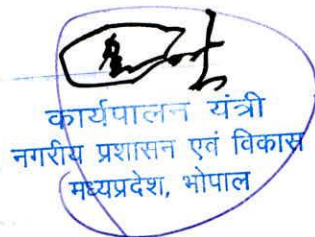 कार्यपालन यंत्री
नगरीय प्रशासन एवं विकास
मध्यप्रदेश, भोपाल